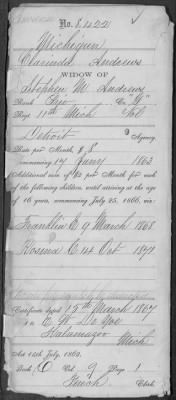 No. 8422
Michigan
Clarinda Andrews
WIDOW OF
Stephen M Andrews
Rank Priv Co "D"
Regt 11th Mich Vol
Detroit Agency
Rate per Month, $8
commencing 17 Jany 1863
Additional sum of $2 per Month for each
of the following children until arriving at the age
of 16 years, commencing July 25, 1866, viz:
Franklin E 9 March 1868
Rosina C 14 Oct 1877
Certificate dated 15th March 1867
Kalamazoo
Mich
Act 14th July, 1862.
Book Vol 2 Page 1
Clerk.